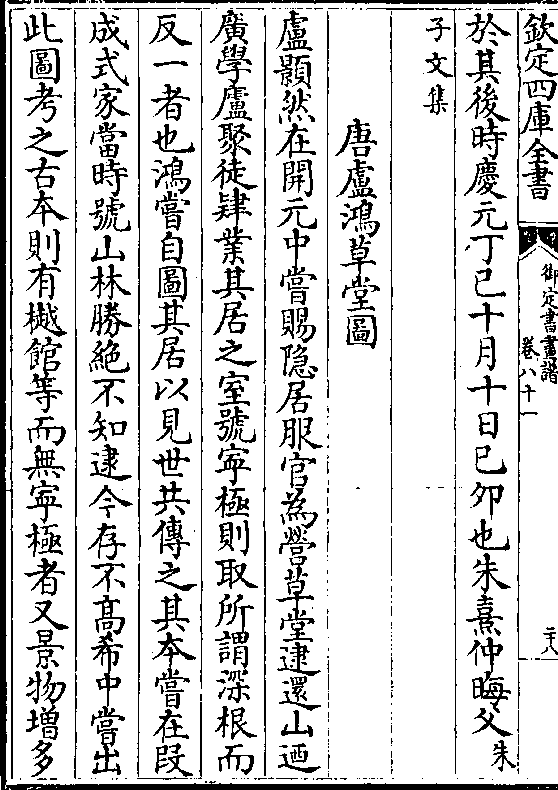 欽定四庫全書
御定書畫譜
卷八十一
二十八
於其後時慶元丁巳十月十日巳夘也朱熹仲晦父朱
子文集
唐盧鴻草堂圖
盧顥然在開元中嘗賜隠居服官為營草堂逮還山迺
廣學廬聚徒肄業其居之室號寕極則取所謂深根而
反一者也鴻嘗自圖其居以見世共傳之其本嘗在段
成式家當時號山林勝絶不知逮今存不髙希中嘗出
此圖考之古本則有樾館等而無寕極者又景物增多